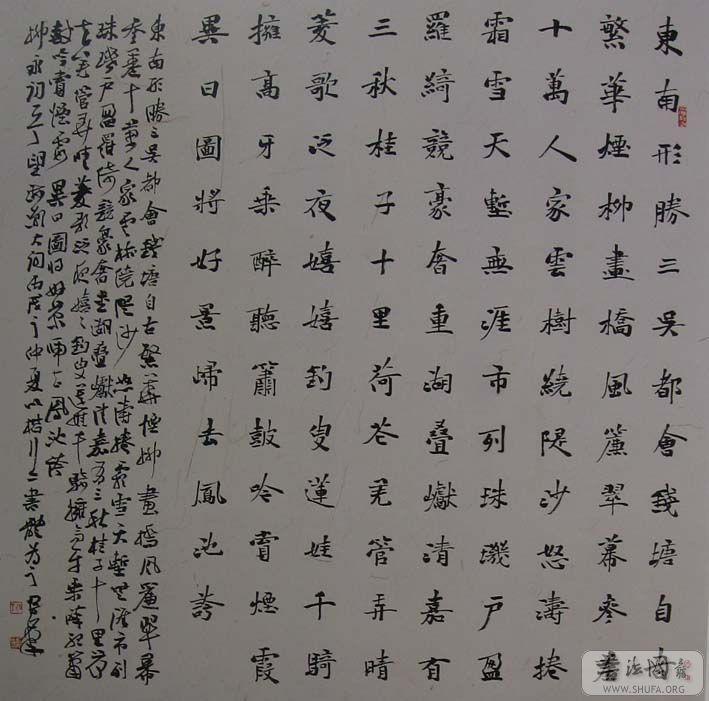 東南形勝三吳都會錢塘自古
繁華煙柳畫橋風簾翠幕參差
十萬人家雲樹繞隄沙怒濤捲
霜雪天塹無涯市列珠璣戶盈
羅綺競豪奢重湖疊巘清嘉有
三秋桂子十里荷花羌管弄晴
菱歌泛夜嬉嬉釣叟蓮娃千騎
擁高牙乘醉聽簫鼓吟賞煙霞
異日圖將好景歸去鳳池誇
東南形勝三吳都會錢塘自古繁華煙柳畫橋風簾翠幕
參差十萬人家雲樹繞隄沙怒濤捲霜雪天塹無涯市列
珠璣戶盈羅綺競豪奢重湖疊巘清嘉有三秋桂子十里荷
花羌管弄晴菱歌泛夜嬉嬉釣叟蓮娃千騎擁高牙乘醉聽簫
鼓吟賞煙霞異日圖將好景歸去鳳池誇
柳永詞望海潮仲夏以楷行二書體為之
WWW.SHUFA.ORG